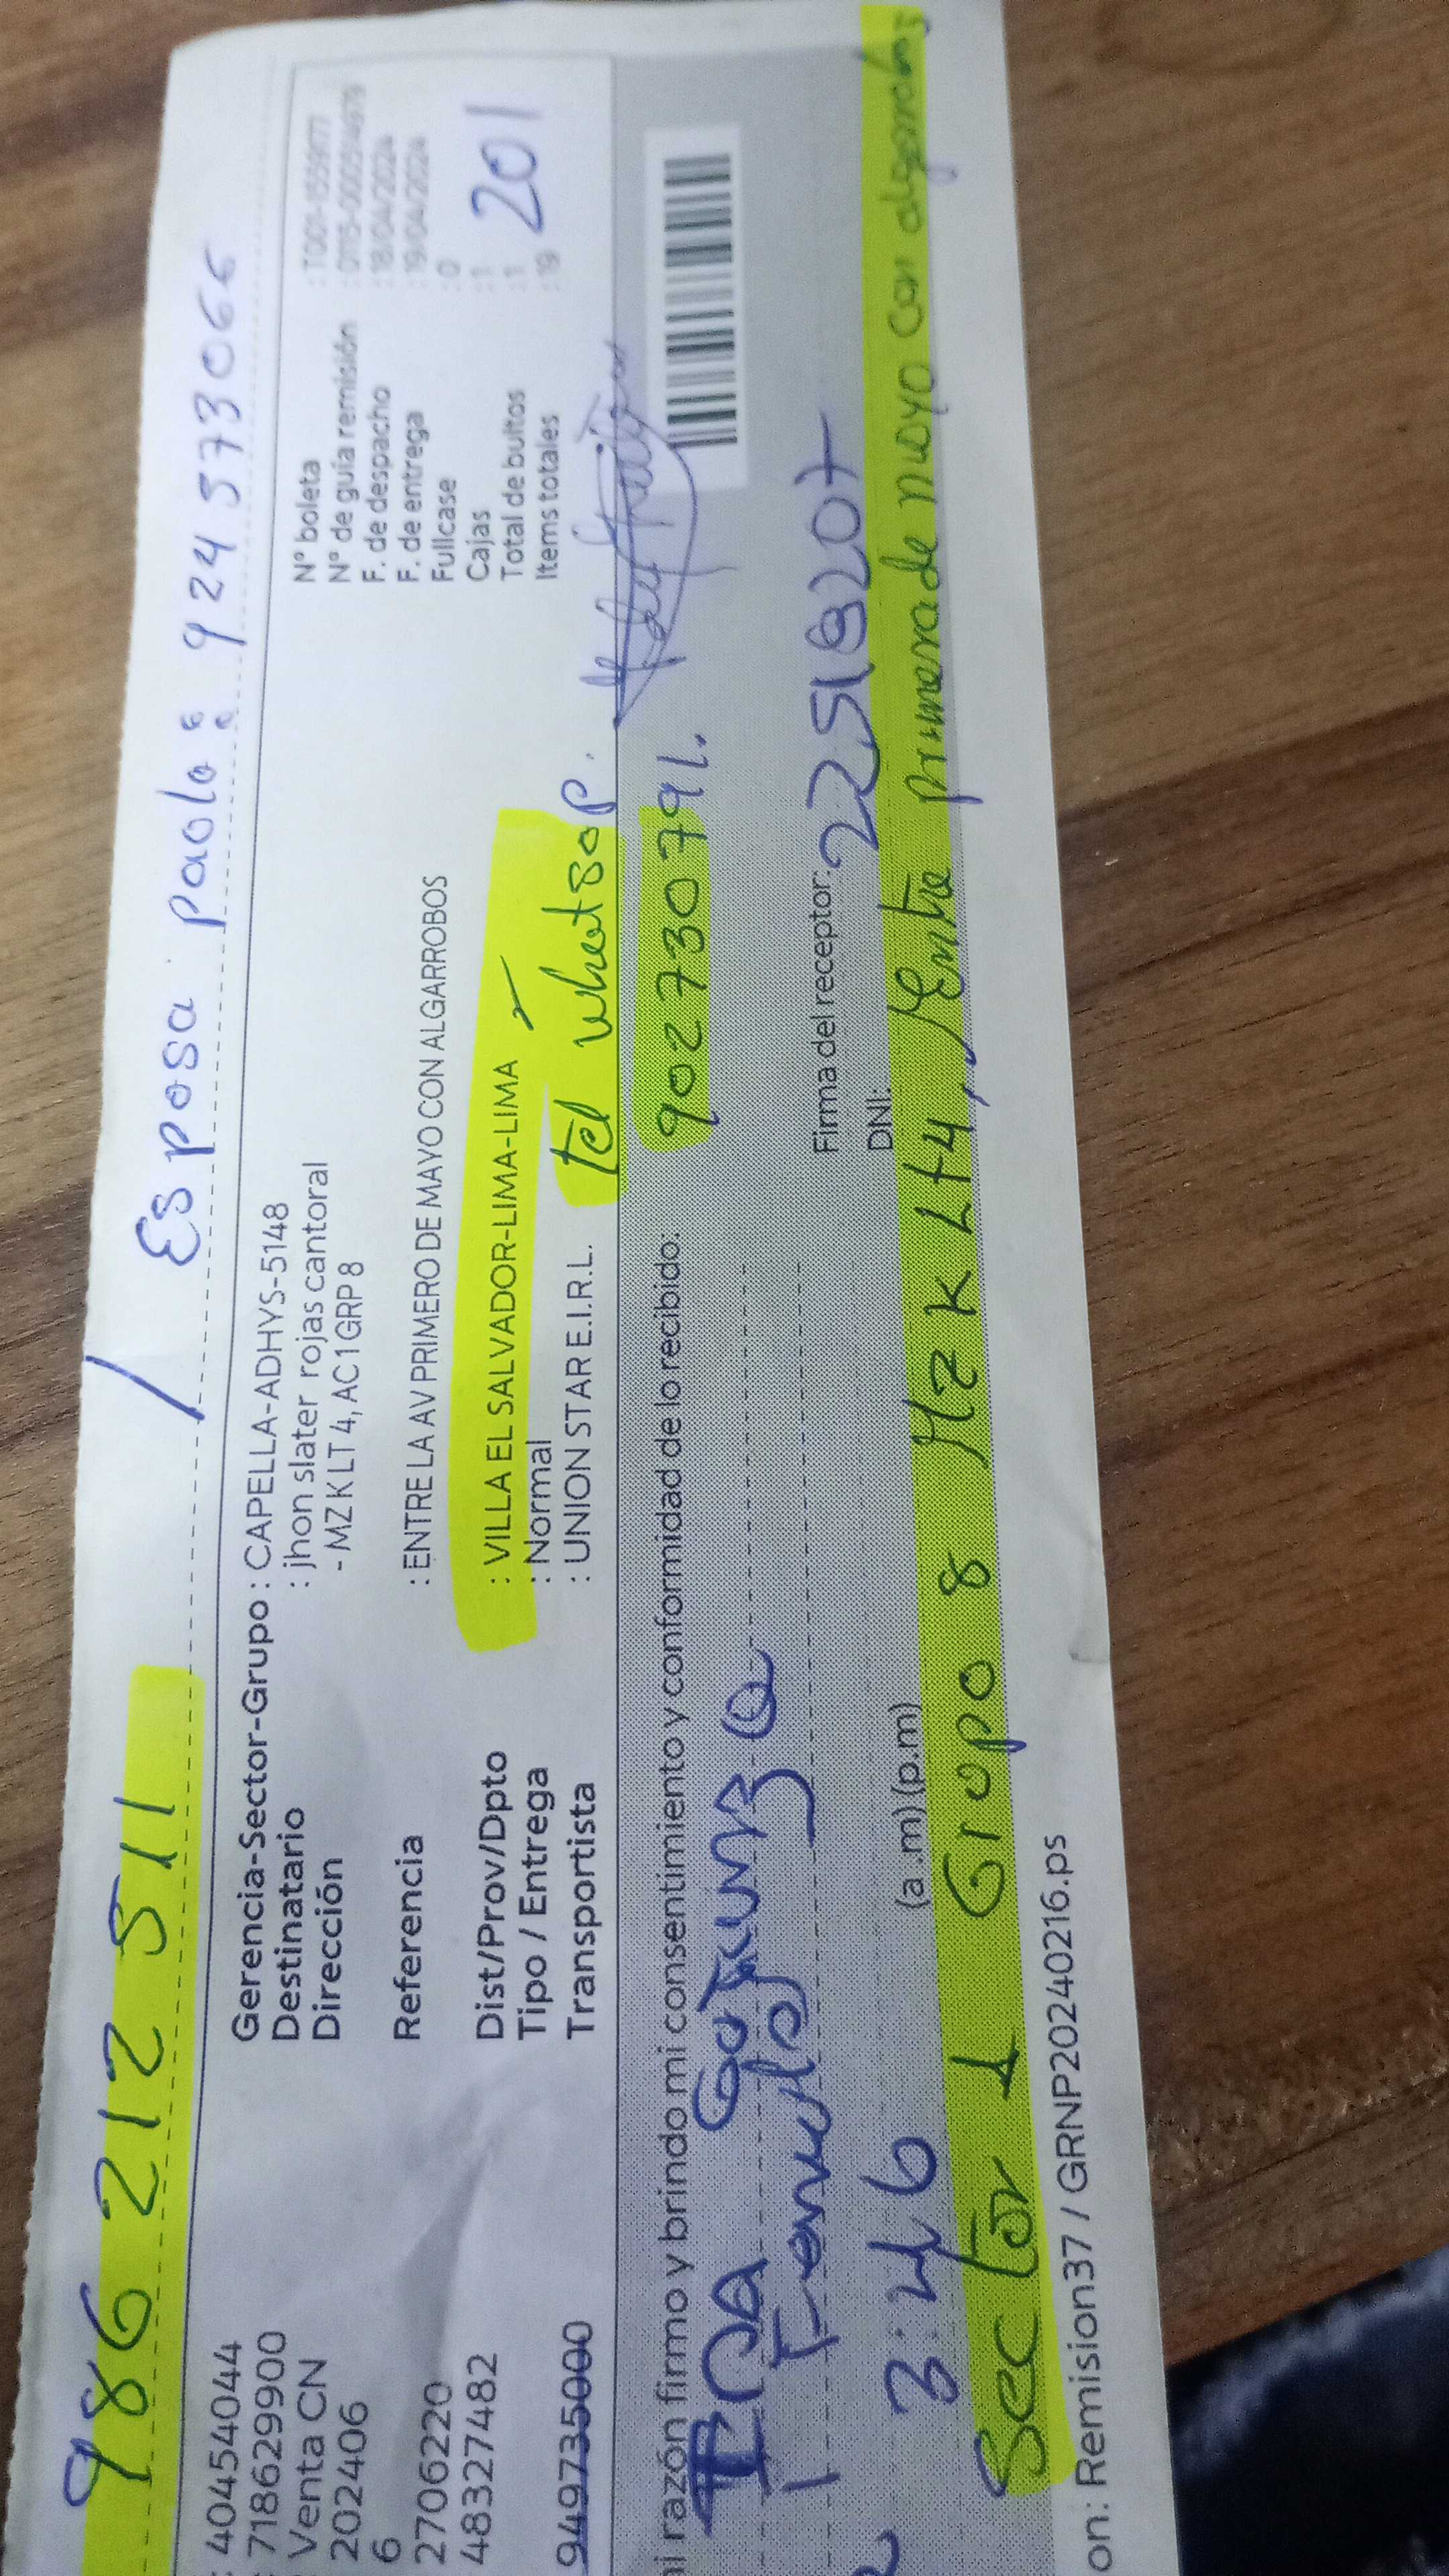 986 212 511 / Esposa paola : 924 573066
: 40454044
: 718629900
: Venta CN
202406
6
27062220
483274882
949735000
Gerencia-Sector-Grupo : CAPELLA-ADHYS-5148
Destinatario : jhon slater rojas cantoral
Dirección - MZ K LT 4, AC 1 GRP 8
Referencia : ENTRE LA AV PRIMERO DE MAYO CON ALGARROBOS
Dist/Prov/Dpto : VILLA EL SALVADOR-LIMA-LIMA
Tipo / Entrega : Normal
Transportista : UNION STAR E.I.R.L.
N° boleta
N° de guía remisión
F. de despacho : 18/04/2024
F. de entrega : 19/04/2024
Fullcase : 0
Cajas : 1
Total de bultos : 1
Items totales : 19
201
tel whatsap.
902730791.
razón firmo y brindo mi consentimiento y conformidad de lo recibido:
3:46
(a.m) (p.m)
Firma del receptor:
DNI:
Sector 1 Grupo 8 Mz K Lt 4, Entre primera de mayo con algarrobos
on.: Remision37 / GRNP20240216.ps